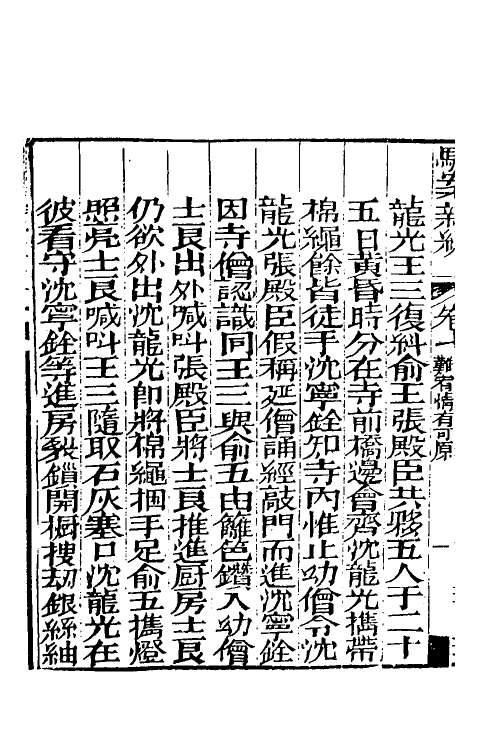 駁案新編 卷十 難宥情有可原
龍光王三復糾俞王張殿臣共夥五人于二十
五日黃昏時分在寺前橋邊會齊沈龍光攜帶
棉繩餘皆徒手沈寧銓知寺內惟止幼僧令沈
龍光張殿臣假稱延僧誦經敲門而進沈寧銓
因寺僧認識同王三與俞五由籬笆鑽入幼僧
士良出外喊叫張殿臣將士良推進厨房士良
仍欲外出沈龍光即將棉繩捆手足俞五攜燈
照亮士良喊叫王三隨取石灰塞口沈龍光在
彼看守沈寧銓等進房裂鎖開櫥搜刼銀絲紬